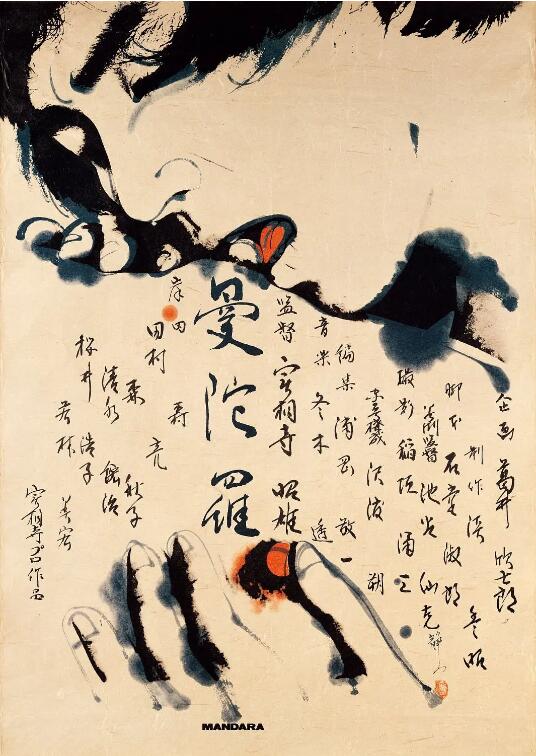 企画 葛井 欣士郎
制作 淡 豊昭
脚本 石堂 淑朗
美術 池谷 仙克
撮影 稲垣 涌三
編集 浦岡 敬一
音楽 冬木 透
監督 実相寺 昭雄
曼陀羅
岸田
田村 亮
森 秋子
清水 紘治
桜井 浩子
若林 美宏
実相寺プロ作品
MANDARA